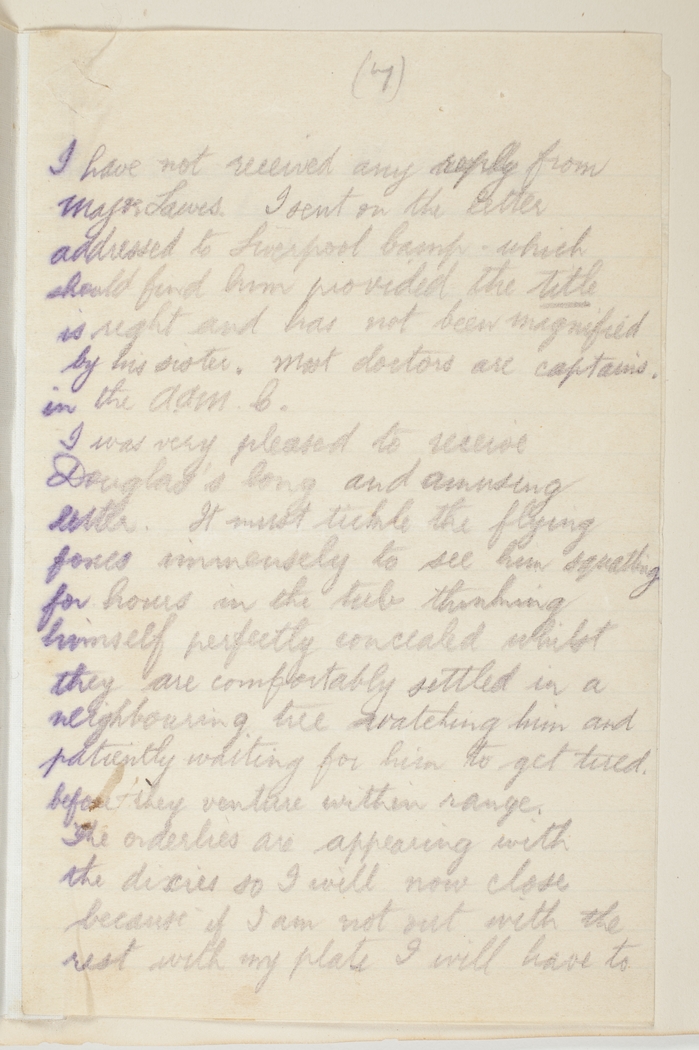 (7)
I have not received any reply from
Major Lawes. I sent on the letter
addressed to Liverpool Camp - which
should find him provided the title
is right and has not been magnified
by his sister. Most doctors are captains.
in the A.A.M.C.
I was very pleased to receive
Douglas's long and amusing
letter. It must tickle the flying
foxes immensely to see him squatting
for hours in the tub thinking
himself perfectly concealed whilst
they are comfortably settled in a
neighbouring tree watching him and
patiently waiting for him to get tired.
before they venture within range.
The orderlies are appearing with
the dixies so I will now close
because if I am not out with the
rest with my plate I will have to